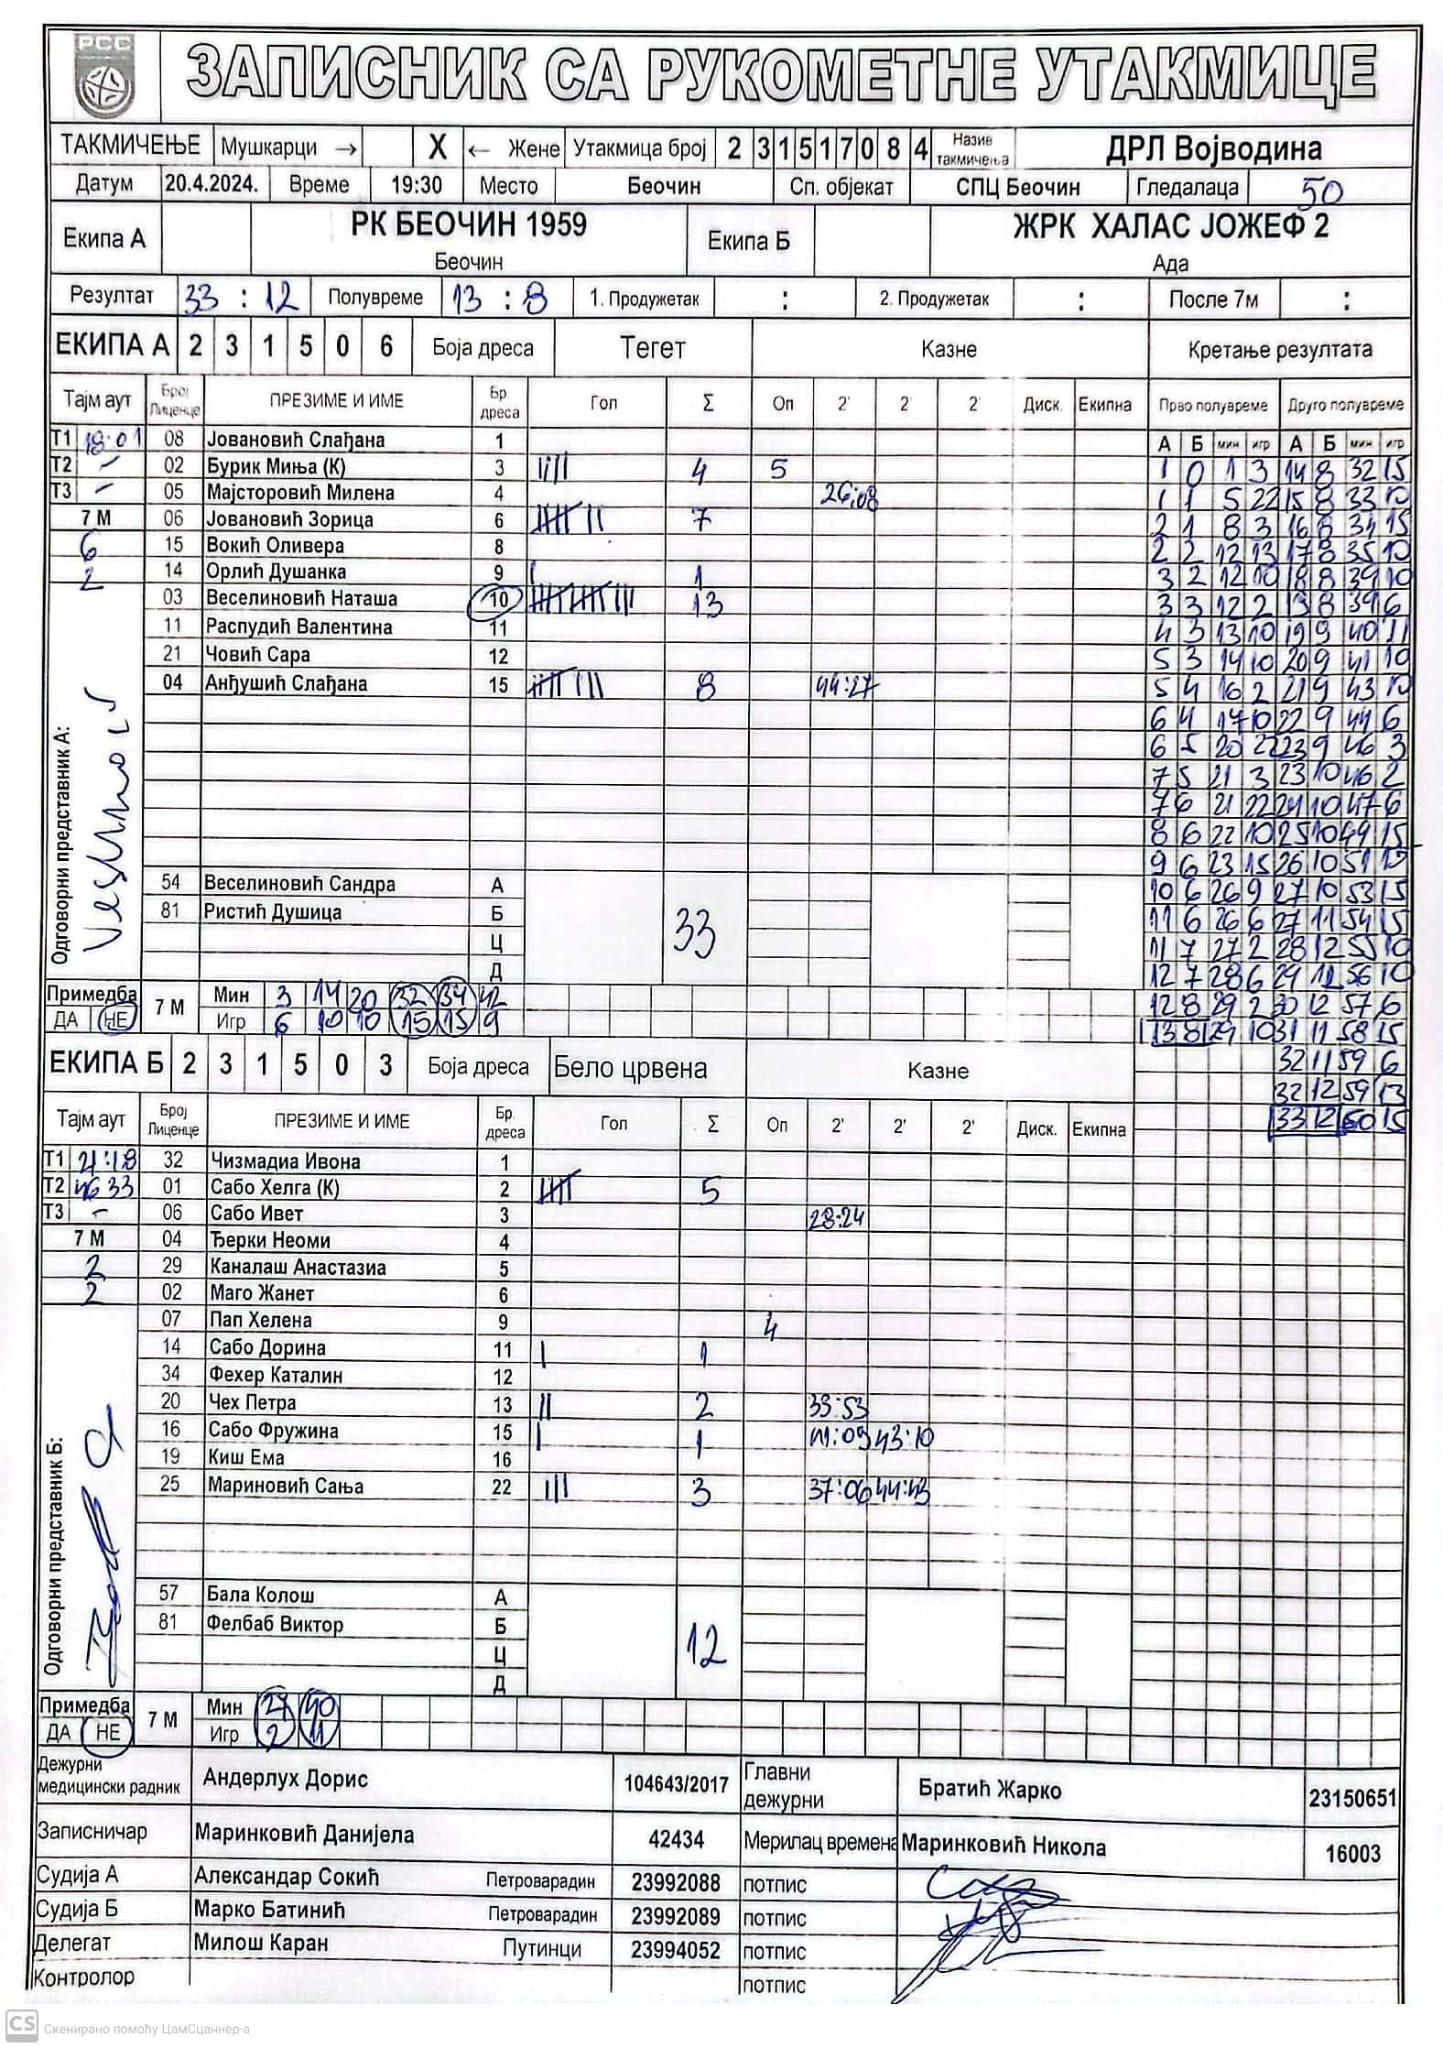 РСС
ЗАПИСНИК СА РУКОМЕТНЕ УТАКМИЦЕ
ТАКМИЧЕЊЕ Мушкарци → X ← Жене Утакмица број 2 3 1 5 1 7 0 8 4 Назив такмичења ДРЛ Војводина
Датум 20.4.2024. Време 19:30 Место Беочин Сп. објекат СПЦ Беочин Гледалаца 50
Екипа А РК БЕОЧИН 1959 Екипа Б ЖРК ХАЛАС ЈОЖЕФ 2
Беочин Ада
Резултат 33 : 12 Полувреме 13 : 8 1. Продужетак : 2. Продужетак : После 7м :
ЕКИПА А 2 3 1 5 0 6 Боја дреса Тегет Казне Кретање резултата
Тајм аут Број Лиценце ПРЕЗИМЕ И ИМЕ Бр дреса Гол Σ Оп 2' 2' 2' Диск. Екипна Прво полувреме Друго полувреме
А Б мин игр А Б мин игр
Т1 08 Јовановић Слађана 1
Т2 – 02 Бурик Миња (К) 3 IIII 4 5 1 0 1 3 14 8 32 15
Т3 – 05 Мајсторовић Милена 4 26:08 1 1 5 22 15 8 33 10
7 М 06 Јовановић Зорица 6 7 2 1 8 3 16 8 34 15
6 15 Вокић Оливера 8 2 2 12 13 17 8 35 10
2 14 Орлић Душанка 9 I 1 3 2 12 10 18 8 39 10
03 Веселиновић Наташа 10 13 3 3 12 2 8 39 6
11 Распудић Валентина 11 4 3 13 10 19 9 40 11
21 Човић Сара 12 5 3 14 10 20 9 41 10
04 Анђушић Слађана 15 8 44:27 5 4 16 2 21 9 43 10
6 4 17 10 22 9 44 6
6 5 20 22 23 9 46 3
7 5 21 3 23 10 46 2
7 6 21 22 24 10 47 6
8 6 22 10 25 10 49 15
9 6 23 15 26 10 51
54 Веселиновић Сандра А 10 6 26 9 27 10 53 15
81 Ристић Душица Б 33 11 6 26 6 27 11 54 15
Ц 11 7 27 2 28 12 55 10
Д 12 7 28 6 29 56 10
Одговорни представник А:
Примедба 7 М Мин 3 14 20 32 34 42 12 8 29 2 30 12 57 6
ДА НЕ Игр 6 10 10 15 15 9 13 8 29 10 31 11 58 15
32 11 59 6
32 12 59 13
33 12 60 15
ЕКИПА Б 2 3 1 5 0 3 Боја дреса Бело црвена Казне
Тајм аут Број Лиценце ПРЕЗИМЕ И ИМЕ Бр. дреса Гол Σ Оп 2' 2' 2' Диск. Екипна
Т1 21:18 32 Чизмадиа Ивона 1
Т2 46 33 01 Сабо Хелга (К) 2 5
Т3 – 06 Сабо Ивет 3 28:24
7 М 04 Ђерки Неоми 4
2 29 Каналаш Анастазиа 5
2 02 Маго Жанет 6
07 Пап Хелена 9 4
14 Сабо Дорина 11 I 1
34 Фехер Каталин 12
20 Чех Петра 13 II 2 33:53
16 Сабо Фружина 15 I 1 43:10
19 Киш Ема 16
25 Мариновић Сања 22 III 3 37:06 44:43
57 Бала Колош А
81 Фелбаб Виктор Б 12
Ц
Д
Одговорни представник Б:
Примедба 7 М Мин 27 40
ДА НЕ Игр 2 11
Дежурни медицински радник Андерлух Дорис 104643/2017 Главни дежурни Братић Жарко 23150651
Записничар Маринковић Данијела 42434 Мерилац времена Маринковић Никола 16003
Судија А Александар Сокић Петроварадин 23992088 потпис
Судија Б Марко Батинић Петроварадин 23992089 потпис
Делегат Милош Каран Путинци 23994052 потпис
Контролор потпис
CS Скенирано помоћу ЦамСцаннер-а